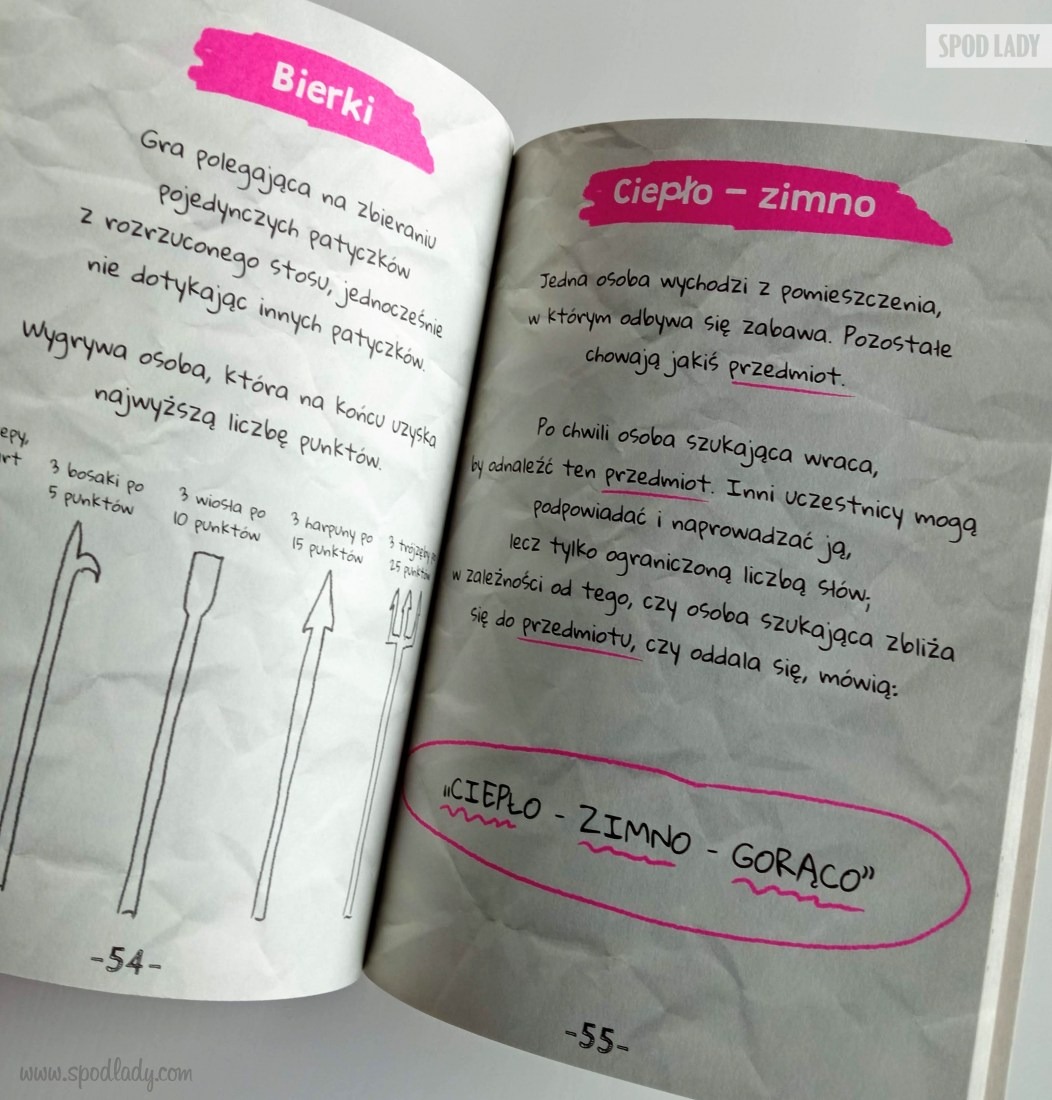 SPOD LADY
Bierki
Gra polegająca na zbieraniu
pojedynczych patyczków
z rozrzuconego stosu, jednocześnie
nie dotykając innych patyczków.
Wygrywa osoba, która na końcu uzyska
najwyższą liczbę punktów.
3 bosaki po
5 punktów
3 wiosła po
10 punktów
3 harpuny po
15 punktów
3 trójzęby
25 punktów
-54-
Ciepło – zimno
Jedna osoba wychodzi z pomieszczenia,
w którym odbywa się zabawa. Pozostałe
chowają jakiś przedmiot.
Po chwili osoba szukająca wraca,
by odnaleźć ten przedmiot. Inni uczestnicy mogą
podpowiadać i naprowadzać ją,
lecz tylko ograniczoną liczbą słów;
w zależności od tego, czy osoba szukająca zbliża
się do przedmiotu, czy oddala się, mówią:
„CIEPŁO - ZIMNO - GORĄCO”
-55-
www.spodlady.com